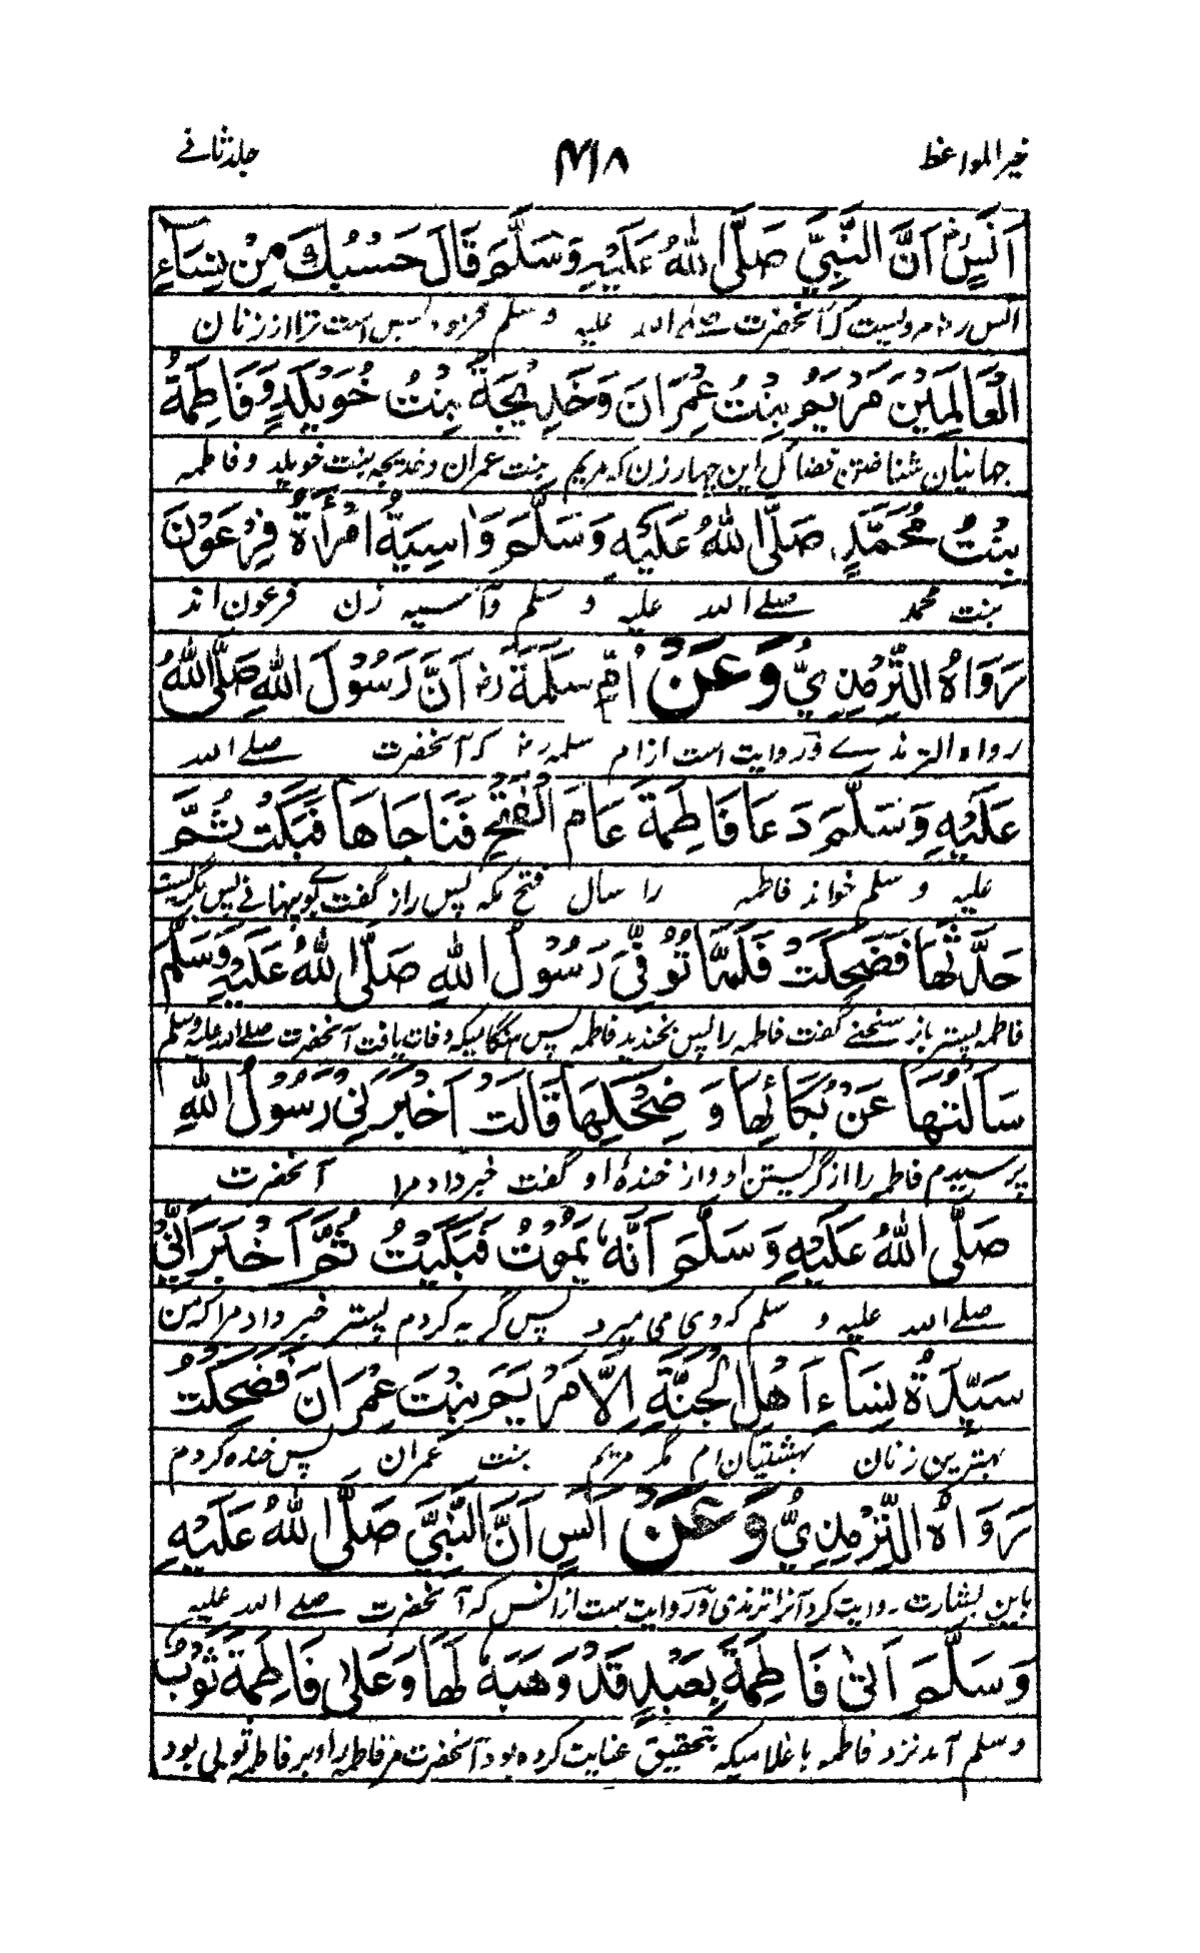 خیر المواعظ ۴۱۸ جلد ثانے
اَنَسٍ رض اَنَّ النَّبِيَّ صَلَّى اللهُ عَلَيْهِ وَسَلَّمَ قَالَ حَسْبُكَ مِنْ نِسَاءِ
انس رض مرویست کہ آنحضرت صلے اللہ علیہ و سلم فرمود بس است ترا از زنان
الْعَالَمِيْنَ مَرْيَمُ بِنْتُ عِمْرَانَ وَخَدِيْجَةُ بِنْتُ خُوَيْلَدٍ وَفَاطِمَةُ
جہانیان شناختن فضائل این چہار زن کہ مریم بنت عمران و خدیجہ بنت خویلد و فاطمہ
بِنْتُ مُحَمَّدٍ صَلَّى اللهُ عَلَيْهِ وَسَلَّمَ وَاٰسِيَةُ امْرَأَةُ فِرْعَوْنَ
بنت محمد صلے اللہ علیہ و سلم و آسیہ زن فرعون اند
رَوَاهُ التِّرْمِذِيُّ وَعَنْ اُمِّ سَلَمَةَ رض اَنَّ رَسُوْلَ اللهِ صَلَّى اللهُ
رواہ الترمذے و روایت است از ام سلمہ رض کہ آنحضرت صلے اللہ
عَلَيْهِ وَسَلَّمَ دَعَا فَاطِمَةَ عَامَ الْفَتْحِ فَنَاجَاهَا فَبَكَتْ ثُمَّ
علیہ و سلم خواند فاطمہ را سال فتح مکہ پس راز گفت بگریست
حَدَّثَهَا فَضَحِكَتْ فَلَمَّا تُوُفِّيَ رَسُوْلُ اللهِ صَلَّى اللهُ عَلَيْهِ وَسَلَّمَ
فاطمہ پستر باز سخنے گفت فاطمہ را پس بخندید فاطمہ پس ہنگامیکہ وفات یافت آنحضرت صلے اللہ علیہ وسلم
سَاَلْتُهَا عَنْ بُكَائِهَا وَ ضِحْكِهَا قَالَتْ اَخْبَرَنِيْ رَسُوْلُ اللهِ
پرسیدم فاطمہ را از گریستن او و از خندۂ او گفت خبر داد مرا آنحضرت
صَلَّى اللهُ عَلَيْهِ وَسَلَّمَ اَنَّهٗ يَمُوْتُ فَبَكَيْتُ ثُمَّ اَخْبَرَنِيْ اَنِّيْ
صلے اللہ علیہ و سلم کہ وی می میرد پس گریہ کردم پستر خبر داد مرا کہ من
سَيِّدَةُ نِسَاءِ اَهْلِ الْجَنَّةِ اِلَّا مَرْيَمَ بِنْتَ عِمْرَانَ فَضَحِكْتُ
بہترین زنان بہشتیان ام مگر مریم بنت عمران پس خندہ کردم
رَوَاهُ التِّرْمِذِيُّ وَعَنْ اَنَسٍ اَنَّ النَّبِيَّ صَلَّى اللهُ عَلَيْهِ
باین بشارت روایت کرد آنرا ترمذی و روایت ہست از انس کہ آنحضرت صلے اللہ علیہ
وَسَلَّمَ اَتٰى فَاطِمَةَ بِعَبْدٍ قَدْ وَهَبَهٗ لَهَا وَعَلٰى فَاطِمَةَ ثَوْبٌ
و سلم آمد نزد فاطمہ با غلامیکہ بتحقیق عنایت کردہ بود آنحضرت مر فاطمہ را و بر فاطمہ ثوبی بود